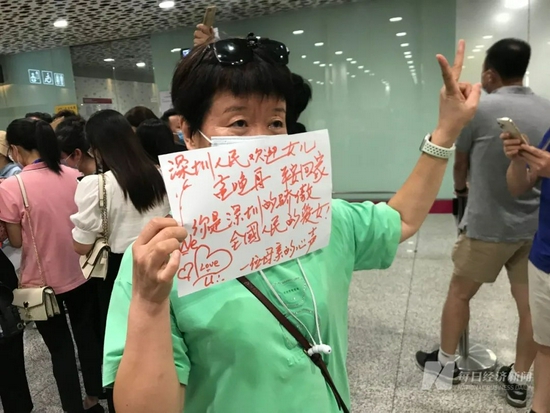 深圳人民欢迎女儿
孟晚舟 回家
你是深圳的骄傲
全國人民的爱女!
一位母亲的心声
Love
U
每日经济新闻